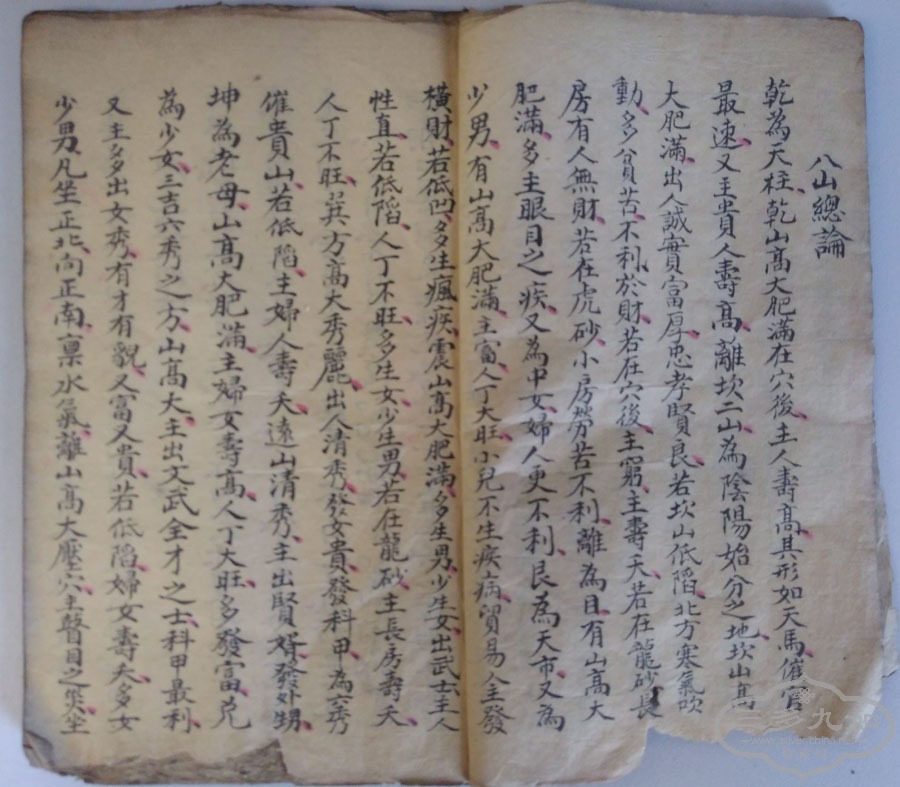 八山總論
乾為天柱乾山髙大肥滿在穴後主人壽髙其形如天馬催官
最速又主貴人壽髙離坎二山為陰陽始分之地坎山髙
大肥滿出人誠實富厚忠孝賢良若坎山低陷北方寒氣吹
動多貧苦不利於財若在穴後主窮主壽夭若在龍砂長
房有人無財若在虎砂小房勞苦不利離為目有山髙大
肥滿多主眼目之疾又為中女婦人更不利艮為天市又為
少男有山髙大肥滿主富人丁大旺小兒不生疾病貿易主發
橫財若低凹多生瘋疾震山髙大肥滿多生男少生女出武士主人
性直若低陷人丁不旺多生女少生男若在龍砂主長房壽夭
人丁不旺巽方髙大秀麗出人清秀發女貴發科甲為六秀
催貴山若低陷主婦人壽夭遠山清秀主出賢婿發外甥
坤為老母山髙大肥滿主婦女壽髙人丁大旺多發富兌
為少女三吉六秀之方山髙大主出文武全才之士科甲最利
又主多出女秀有才有貌又富又貴若低陷婦女壽夭多女
少男凡坐正北向正南稟水氣離山髙大壓穴主瞽目之災坐